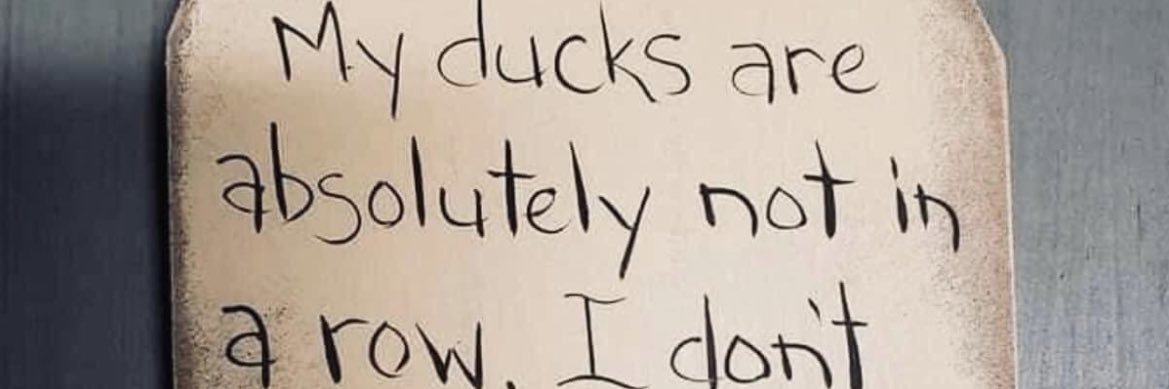 My ducks are
absolutely not in
a row. I don't